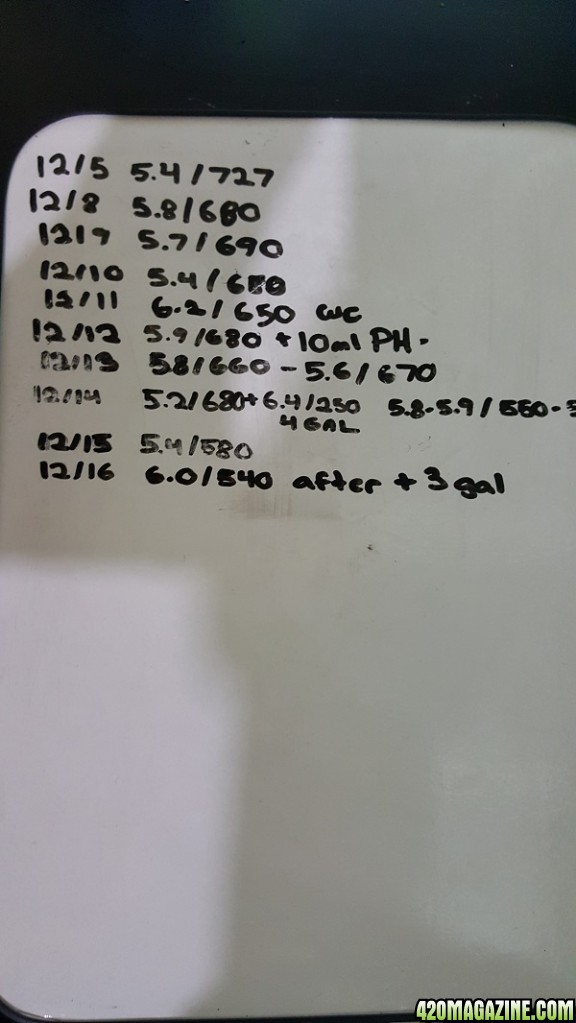 12/5 5.4/727
12/8 5.8/680
12/9 5.7/690
12/10 5.4/
12/11 6.2/650 WC
12/12 5.9/680 + 10ml PH-
12/13 5.8/660 - 5.6/670
12/14 5.2/680+ 6.4/250 5.8-5.9/560-5
4 GAL
12/15 5.4/580
12/16 6.0/540 after + 3 gal
420MAGAZINE.COM